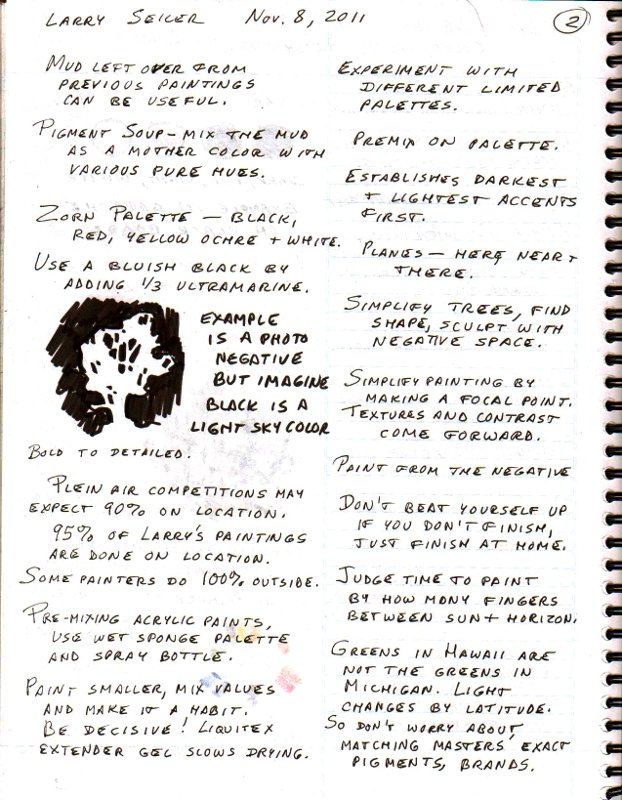 Larry Seiler Nov. 8, 2011 2
Mud left over from
previous paintings
can be useful.
Pigment Soup - mix the mud
as a mother color with
various pure hues.
Zorn Palette - Black,
red, yellow ochre + white.
Use a bluish black by
adding 1/3 ultramarine.
Example
is a photo
negative
but imagine
black is a
light sky color
Bold to detailed.
Plein air competitions may
expect 90% on location.
95% of Larry's paintings
are done on location.
Some painters do 100% outside.
Pre-mixing acrylic paints,
use wet sponge palette
and spray bottle.
Paint smaller, mix values
and make it a habit.
Be decisive! Liquitex
extender gel slows drying.
Experiment with
different limited
palettes.
Premix on palette.
Establishes darkest
+ lightest accents
first.
Planes - here near +
there.
Simplify trees, find
shape, sculpt with
negative space.
Simplify painting by
making a focal point.
Textures and contrast
come forward.
Paint from the negative
Don't beat yourself up
if you don't finish,
just finish at home.
Judge time to paint
by how mony fingers
between sun + horizon.
Greens in Hawaii are
not the greens in
Michigan. Light
changes by latitude.
So don't worry about
matching masters' exact
pigments, brands.